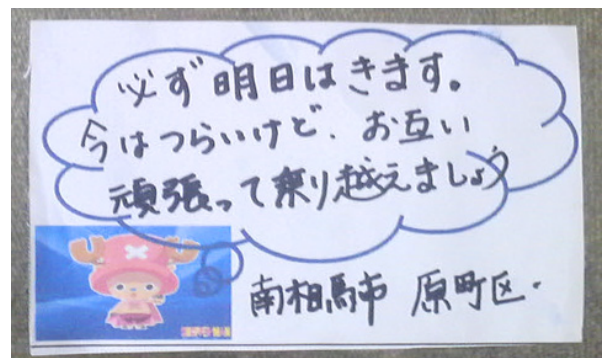 必ず明日はきます。
今はつらいけど、お互い
頑張って乗り越えましょう
南相馬市 原町区.